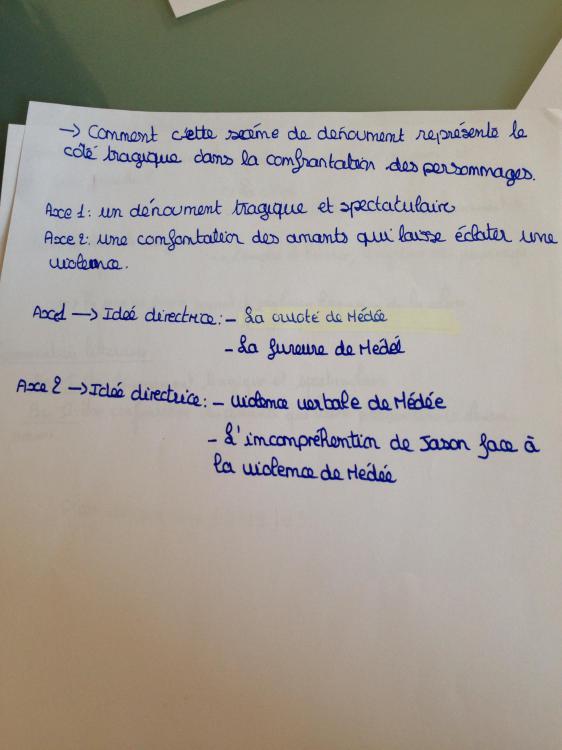 → Comment cette scéme de denoument représente le
côté tragique dans la confrantation des personmages.
Axe 1: un dénoument tragique et spectaculaire
Axe 2: une confontation des amants qui laisse éclater une
violence.
Axe1 → Ideé directrice: - La cruoté de Médée
- La fureure de Médéé
Axe 2 → Ideé directrice: - violence verbale de Médée
- L'incompréhention de Jason face à
la violence de Médée